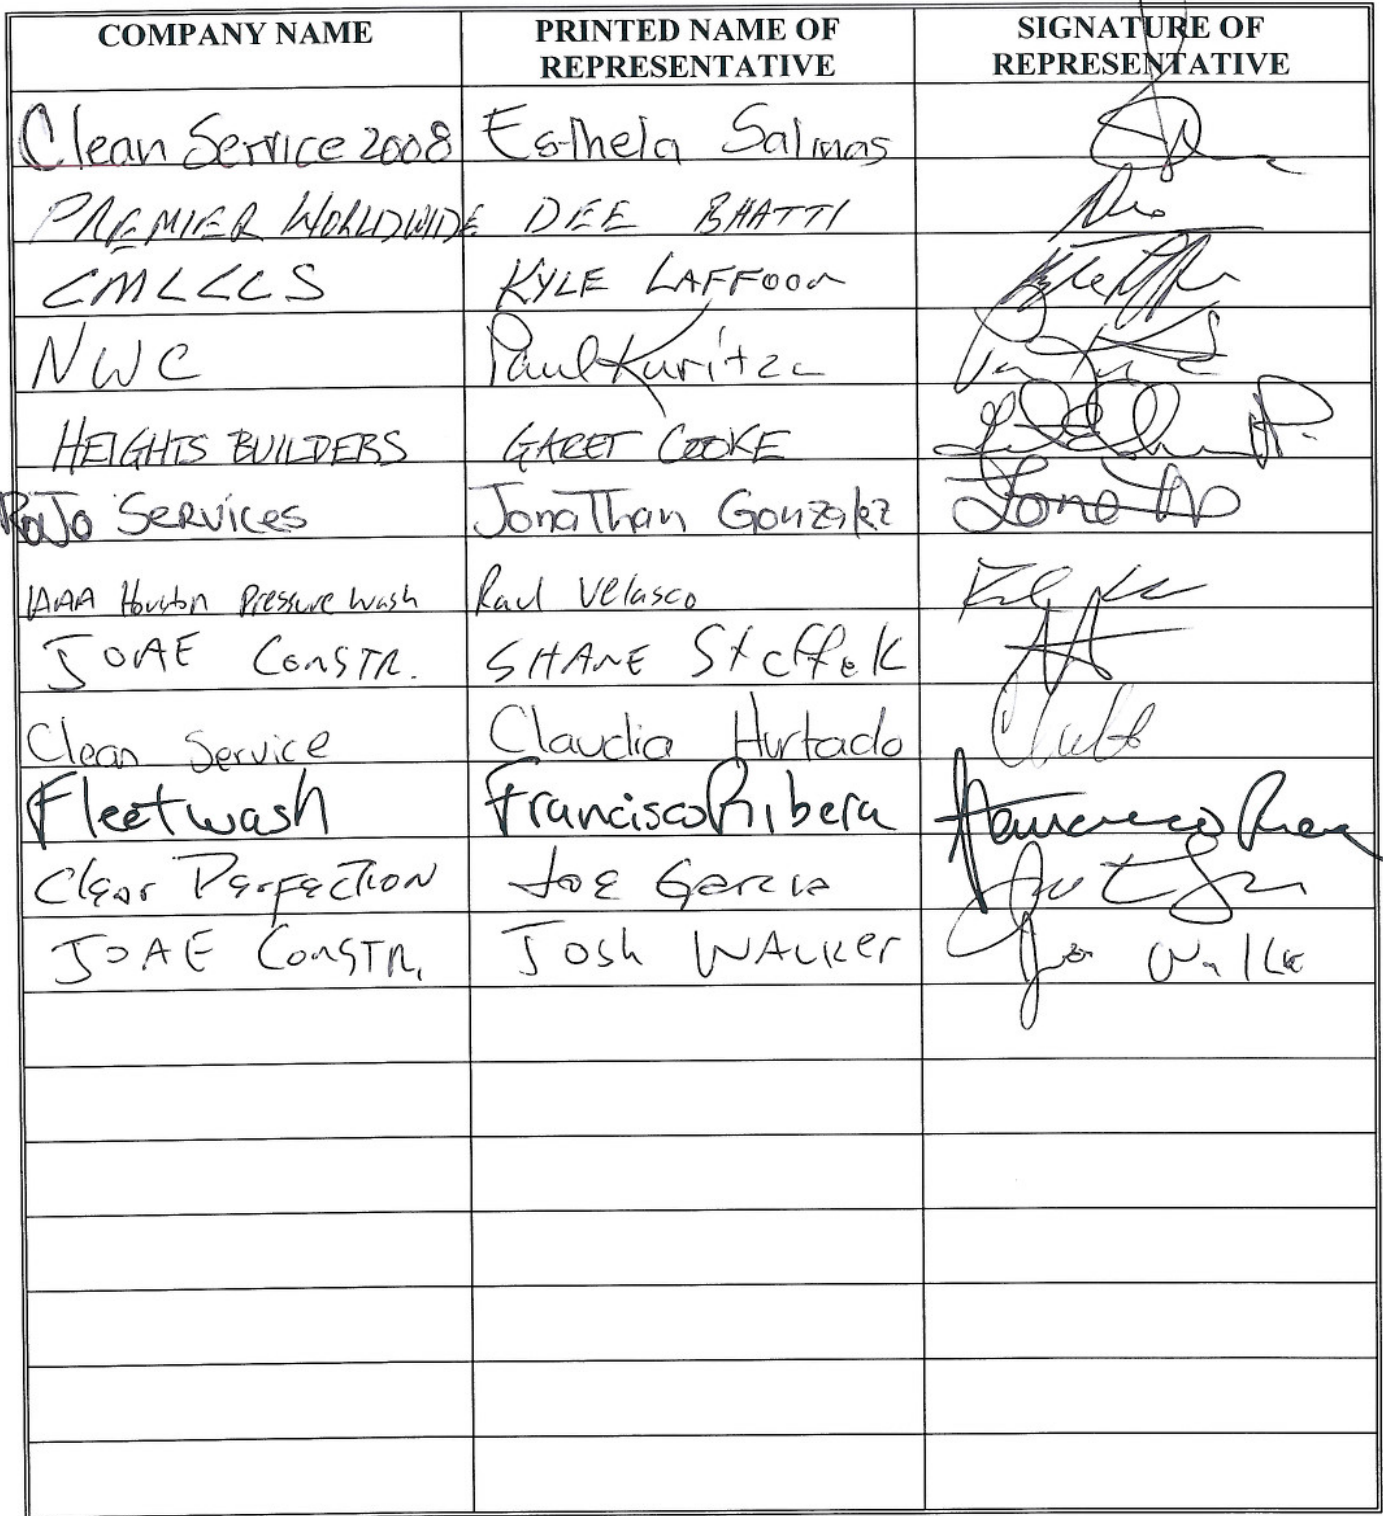 COMPANY NAME PRINTED NAME OF REPRESENTATIVE SIGNATURE OF REPRESENTATIVE
Clean Service 2008 Esthela Salinas
PREMIER WORLDWIDE DEE BHATTI
CMLCCS KYLE LAFFOON
NWC Paul Kuritza
HEIGHTS BUILDERS GARET COOKE
RoJo Services Jonathan Gonzalez
1AAA Houston Pressure Wash Raul Velasco
JOAE Constr. SHANE Steffek
Clean Service Claudia Hurtado
Fleetwash Francisco Ribera
Clear Perfection Joe Garcia
JOAE Constr. Josh WALKER